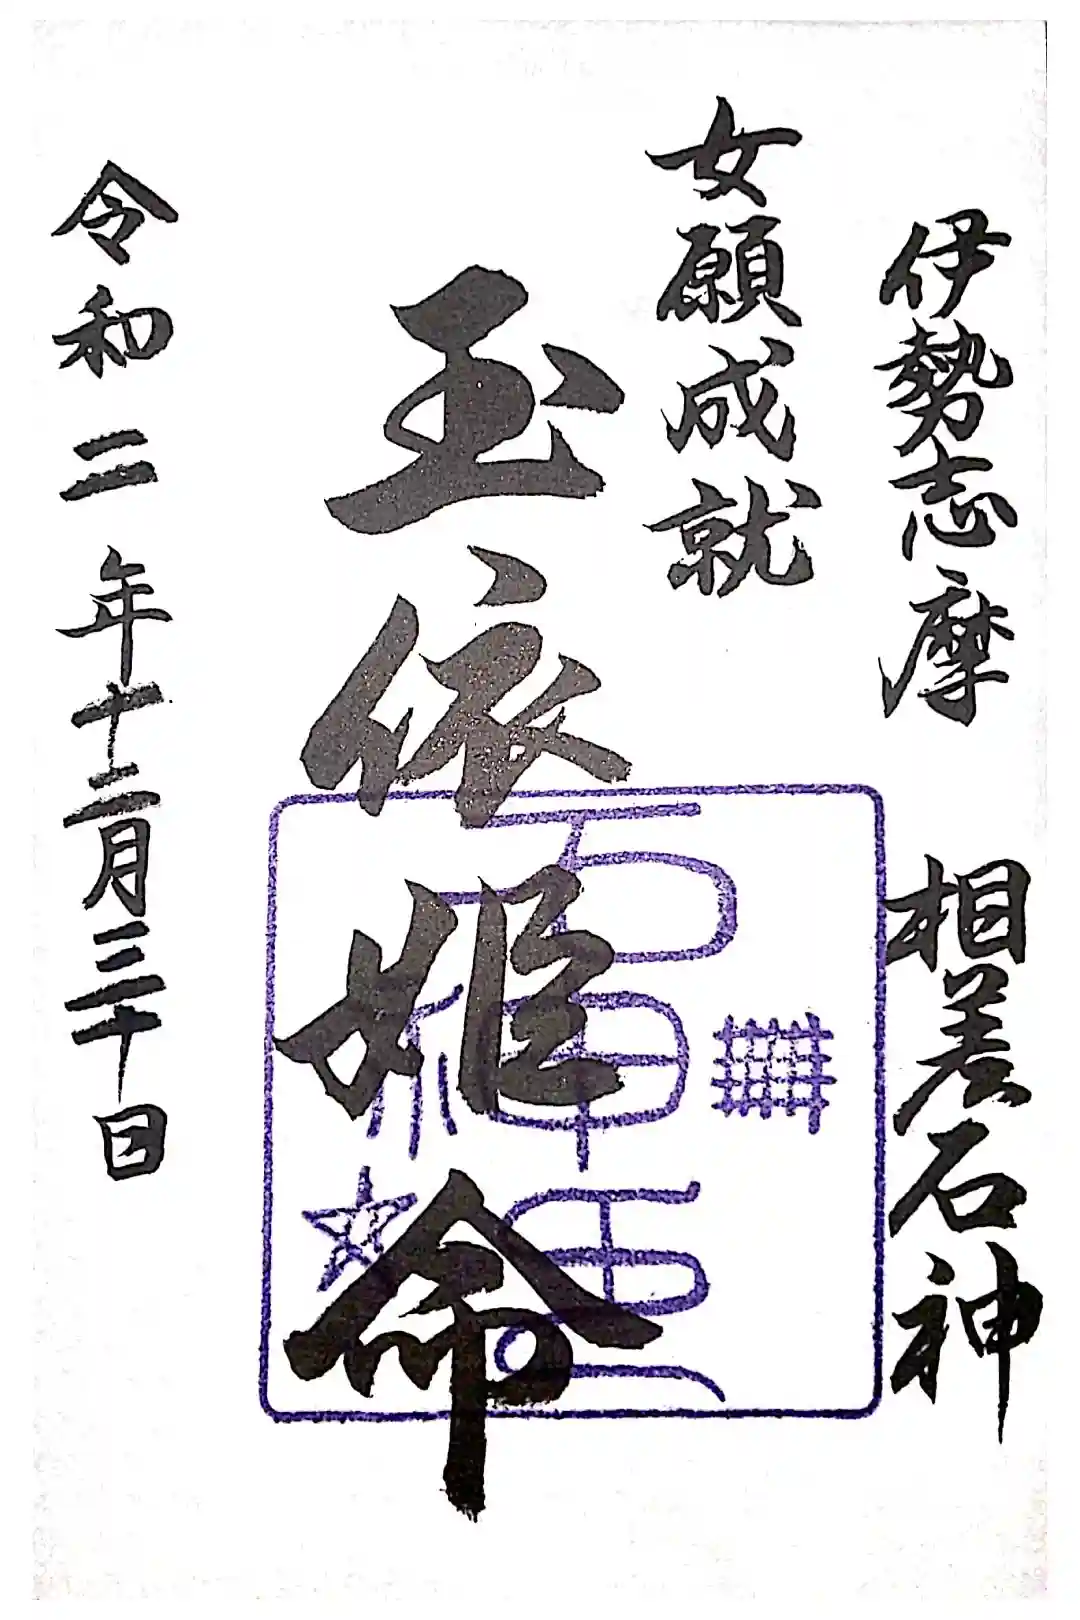 伊勢志摩 相差石神
女願成就
玉依姫命
令和二年十二月三十日
石神